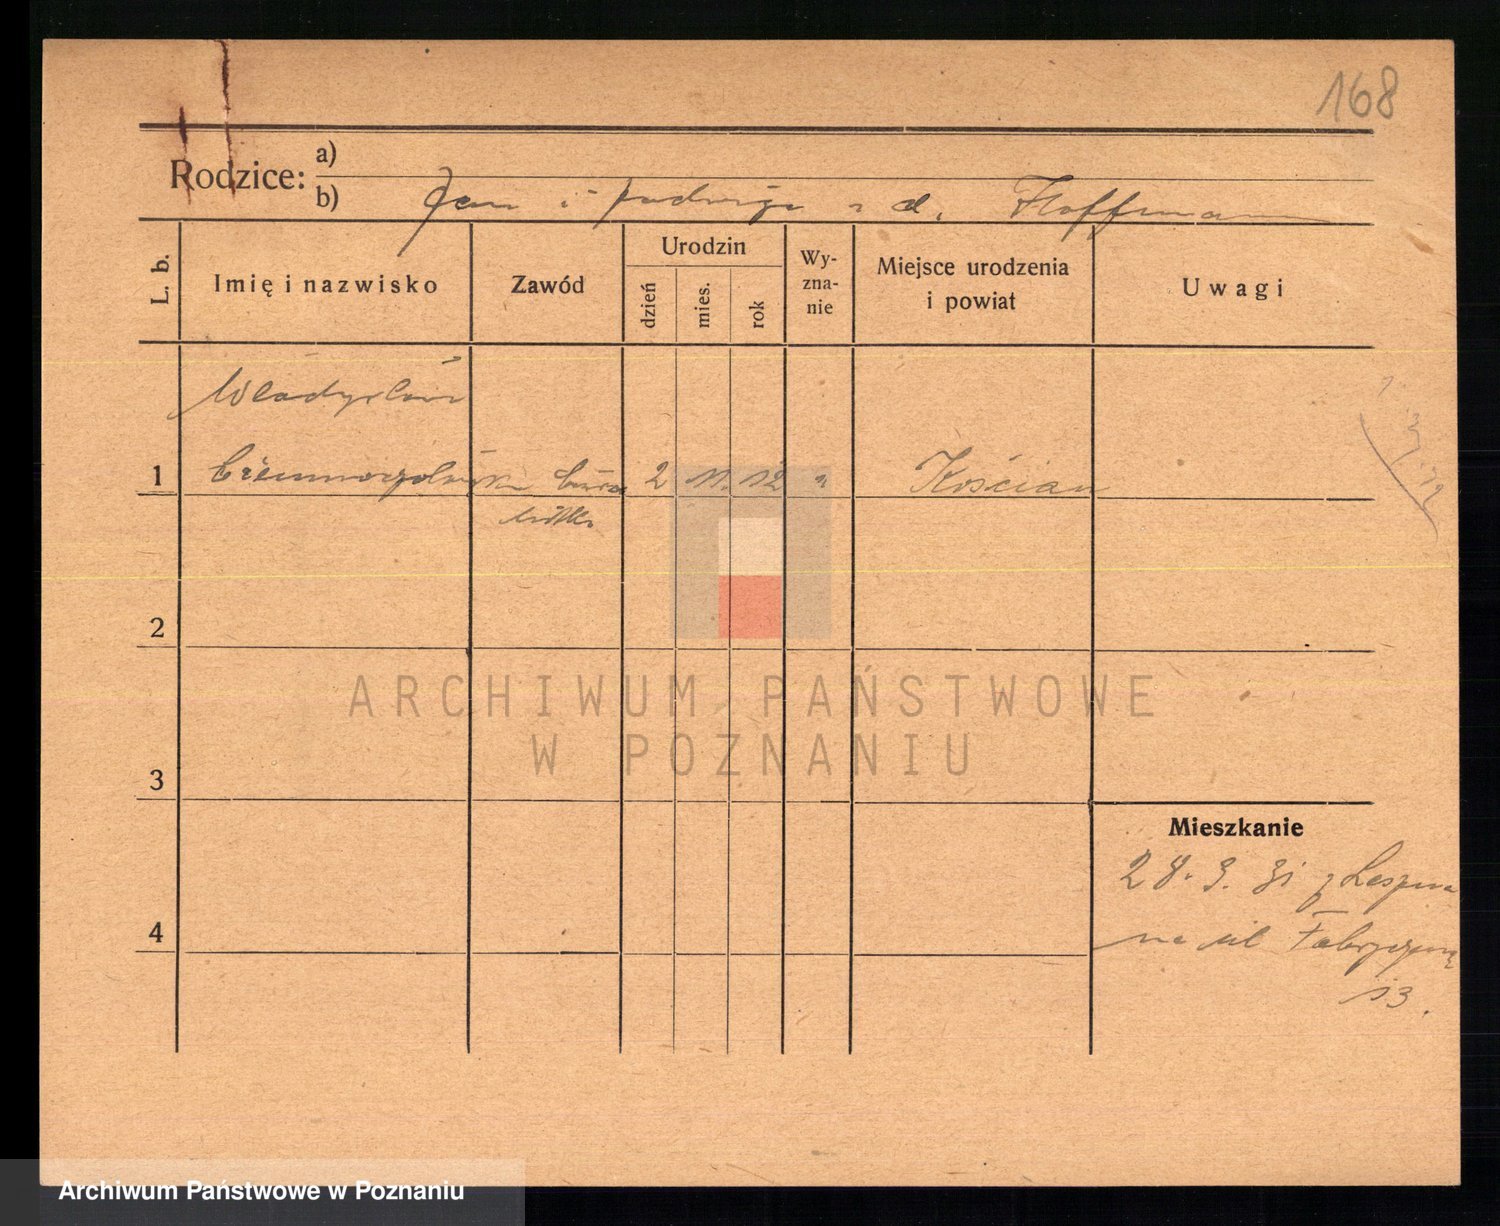 168
Rodzice: a)
b) Jan i Jadwiga z d. Hoffmann
L. b.
Imię i nazwisko
Zawód
Urodzin
dzień
mies.
rok
Wy-
zna-
nie
Miejsce urodzenia
i powiat
Uwagi
Władysław
1 2 11. 12 Kościan
2
3
4
Mieszkanie
28. 3. 31 z
na ul
13.
ARCHIWUM PAŃSTWOWE
W POZNANIU
Archiwum Państwowe w Poznaniu